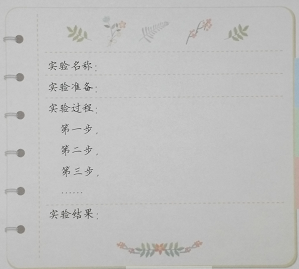 实验名称:
实验准备:
实验过程:
第一步:
第二步:
第三步:
……
实验结果: